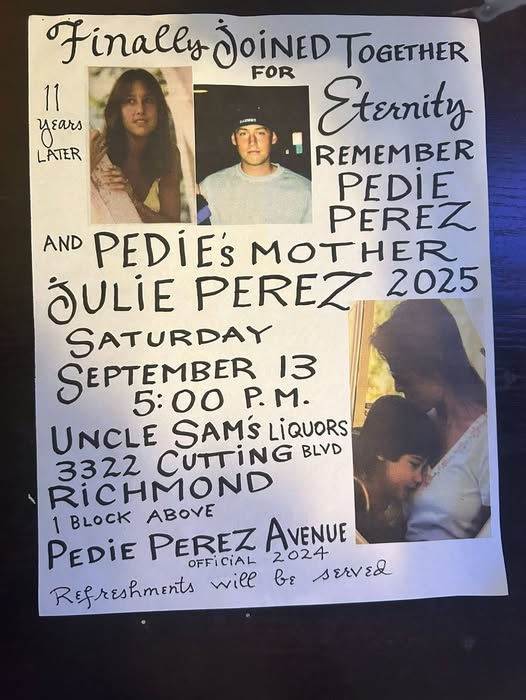 Finally JOiNED TOGETHER
FOR
Eternity
11
Years
LATER
REMEMBER
PEDiE
PEREZ
AND PEDiE's MOTHER
JULiE PEREZ 2025
SATURDAY
SEPTEMBER 13
5:00 P.M.
UNCLE SAM's LiQUORS
3322 CUTTiNG BLVD
RiCHMOND
1 BLOCK ABOVE
PEDiE PEREZ AVENUE
OFFiCiAL 2024
Refreshments will be served